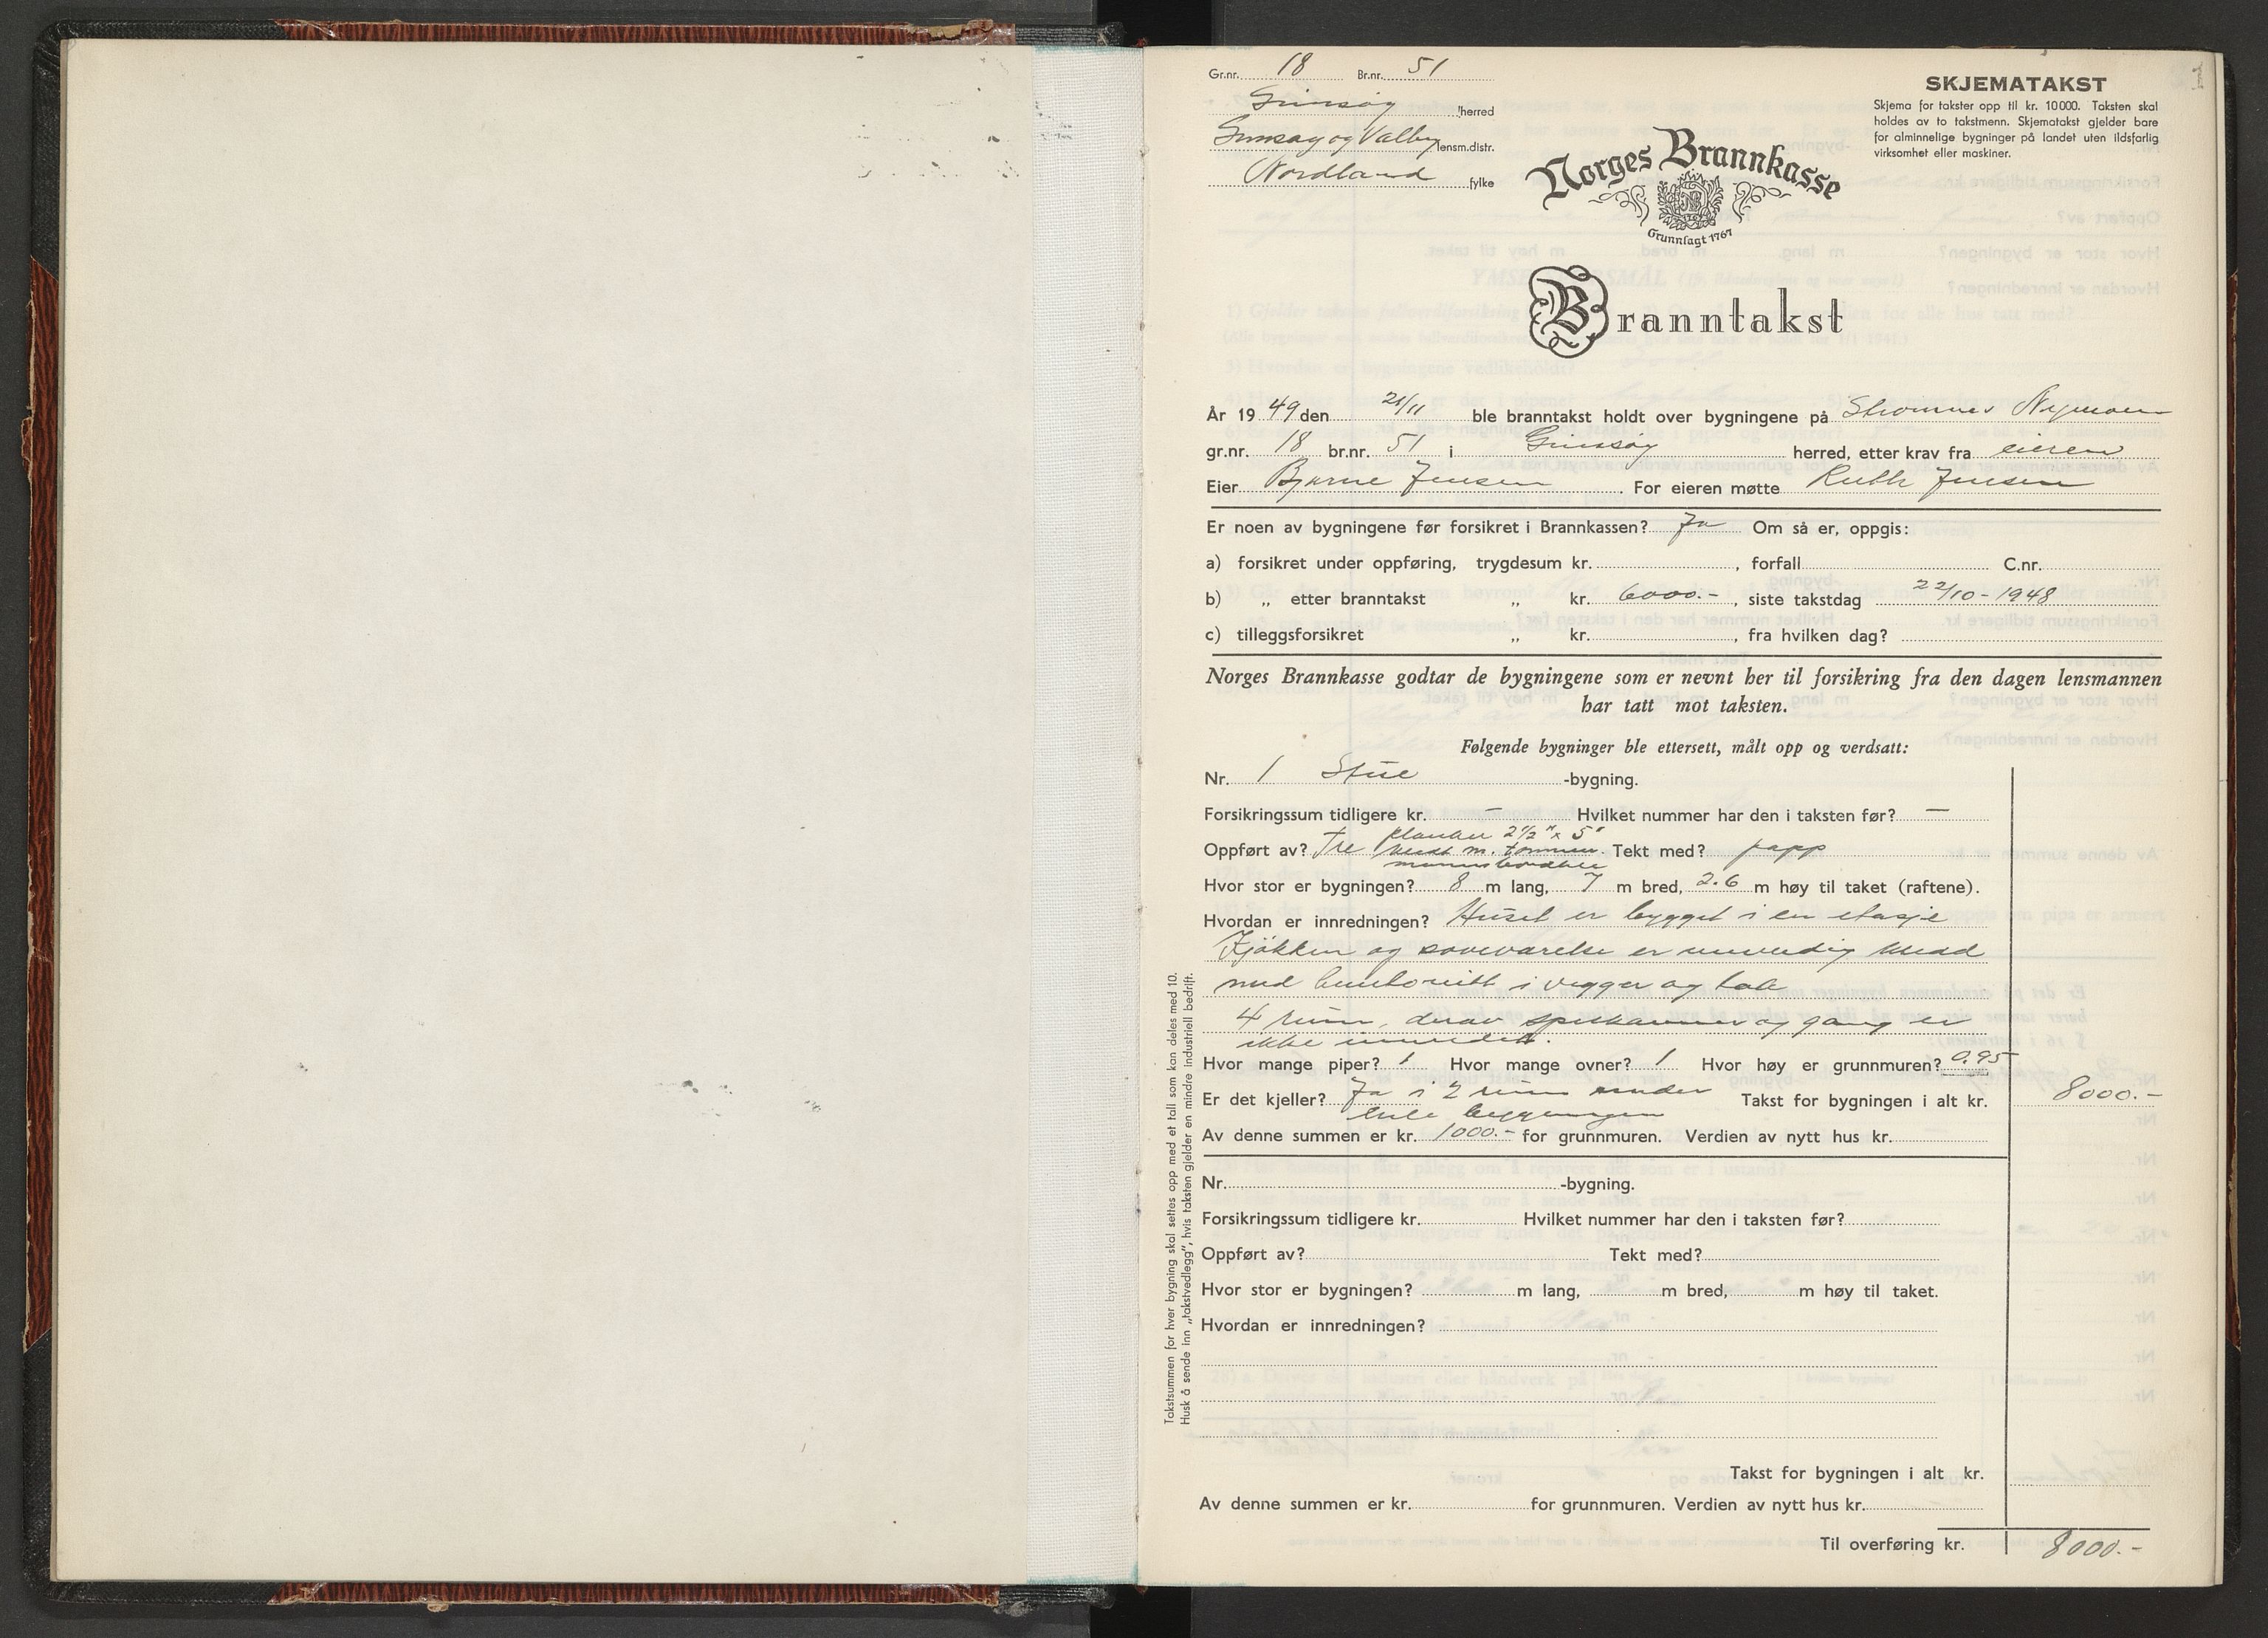 1
Gr.nr. 18 Br.nr. 51
Grimsøy herred
Grimsøy og Valberg lensm.distr.
Nordland fylke
SKJEMATAKST
Skjema for takster opp til kr. 10 000. Taksten skal
holdes av to takstmenn. Skjematakst gjelder bare
for alminnelige bygninger på landet uten ildsfarlig
virksomhet eller maskiner.
Norges Brannkasse
Grunnlagt 1767
Branntakst
År 19 49 den 21/11 ble branntakst holdt over bygningene på Strømnes Nymoen
gr.nr. 18 br.nr. 51 i Gimsøy herred, etter krav fra eieren
Eier Bjarne Jensen. For eieren møtte Ruth Jensen
Er noen av bygningene før forsikret i Brannkassen? Ja Om så er, oppgis:
a) forsikret under oppføring, trygdesum kr. , forfall C.nr.
b) „ etter branntakst „ kr. 6000.- , siste takstdag 22/10 - 1948
c) tilleggsforsikret „ kr. , fra hvilken dag?
Norges Brannkasse godtar de bygningene som er nevnt her til forsikring fra den dagen lensmannen
har tatt mot taksten.
Følgende bygninger ble ettersett, målt opp og verdsatt:
Nr. 1 Stue -bygning.
Forsikringssum tidligere kr. — Hvilket nummer har den i taksten før? —
planker 2½" x 5"
Oppført av? Tre kledt m. Tekt med? papp
Hvor stor er bygningen? 8 m lang, 7 m bred, 2.6 m høy til taket (raftene).
Hvordan er innredningen? Huset er bygget i en etasje
Kjøkken og soveværelse er innvendig kledd
med huntonitt i vegger og tak
4 rum, derav spiskammer og gang er
ikke innredet.
Hvor mange piper? 1 Hvor mange ovner? 1 Hvor høy er grunnmuren? 0.95
Er det kjeller? Ja i 2 rum under Takst for bygningen i alt kr. 8000.-
hele bygningen
Av denne summen er kr. 1000.- for grunnmuren. Verdien av nytt hus kr.
Nr. -bygning.
Forsikringssum tidligere kr. Hvilket nummer har den i taksten før?
Oppført av? Tekt med?
Hvor stor er bygningen? m lang, m bred, m høy til taket.
Hvordan er innredningen?
Takst for bygningen i alt kr.
Av denne summen er kr. for grunnmuren. Verdien av nytt hus kr.
Til overføring kr. 8000.-
Takstsummen for hver bygning skal settes opp med et tall som kan deles med 10.
Husk å sende inn „takstvedlegg", hvis taksten gjelder en mindre industriell bedrift.